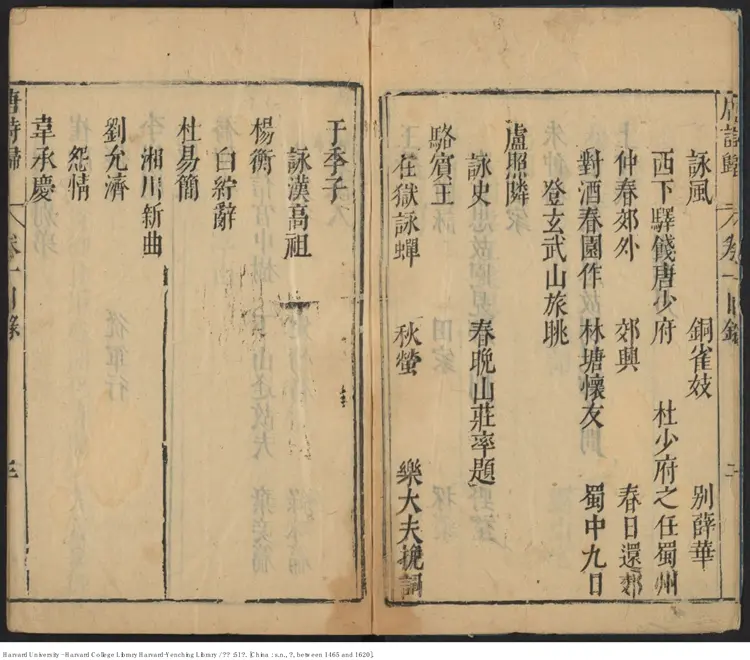 詠風 銅雀妓 别薛華
西下驛餞唐少府 杜少府之任蜀州
仲春郊外 郊興 春日還郊
對酒春園作 林塘懷友 蜀中九日
登玄武山旅眺
盧照隣
詠史 春晚山莊率題
駱賓王
在獄詠蟬 秋螢 樂大夫挽詞
于季子
詠漢高祖
楊衡
白紵辭
杜易簡
湘川新曲
劉允濟
怨情
韋承慶
唐詩歸 卷一目錄
Harvard University - Harvard College Library Harvard-Yenching Library / ?? :51?. [China : s.n., ?, between 1465 and 1620].